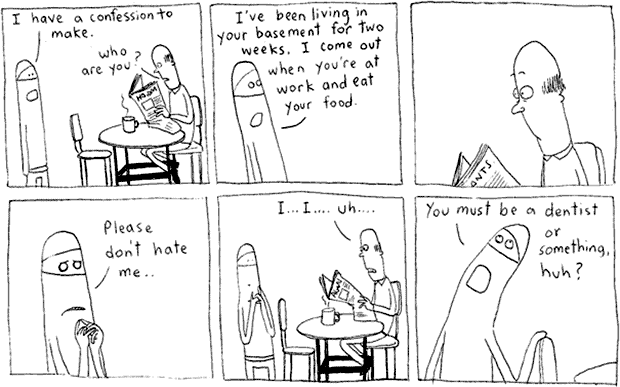 I have a confession to
make.
who
are you?
I've been living in
your basement for two
weeks. I come out
when you're at
work and eat
your food.
ANTS
Please
don't hate
me..
I...I.... uh....
You must be a dentist
or
something,
huh?